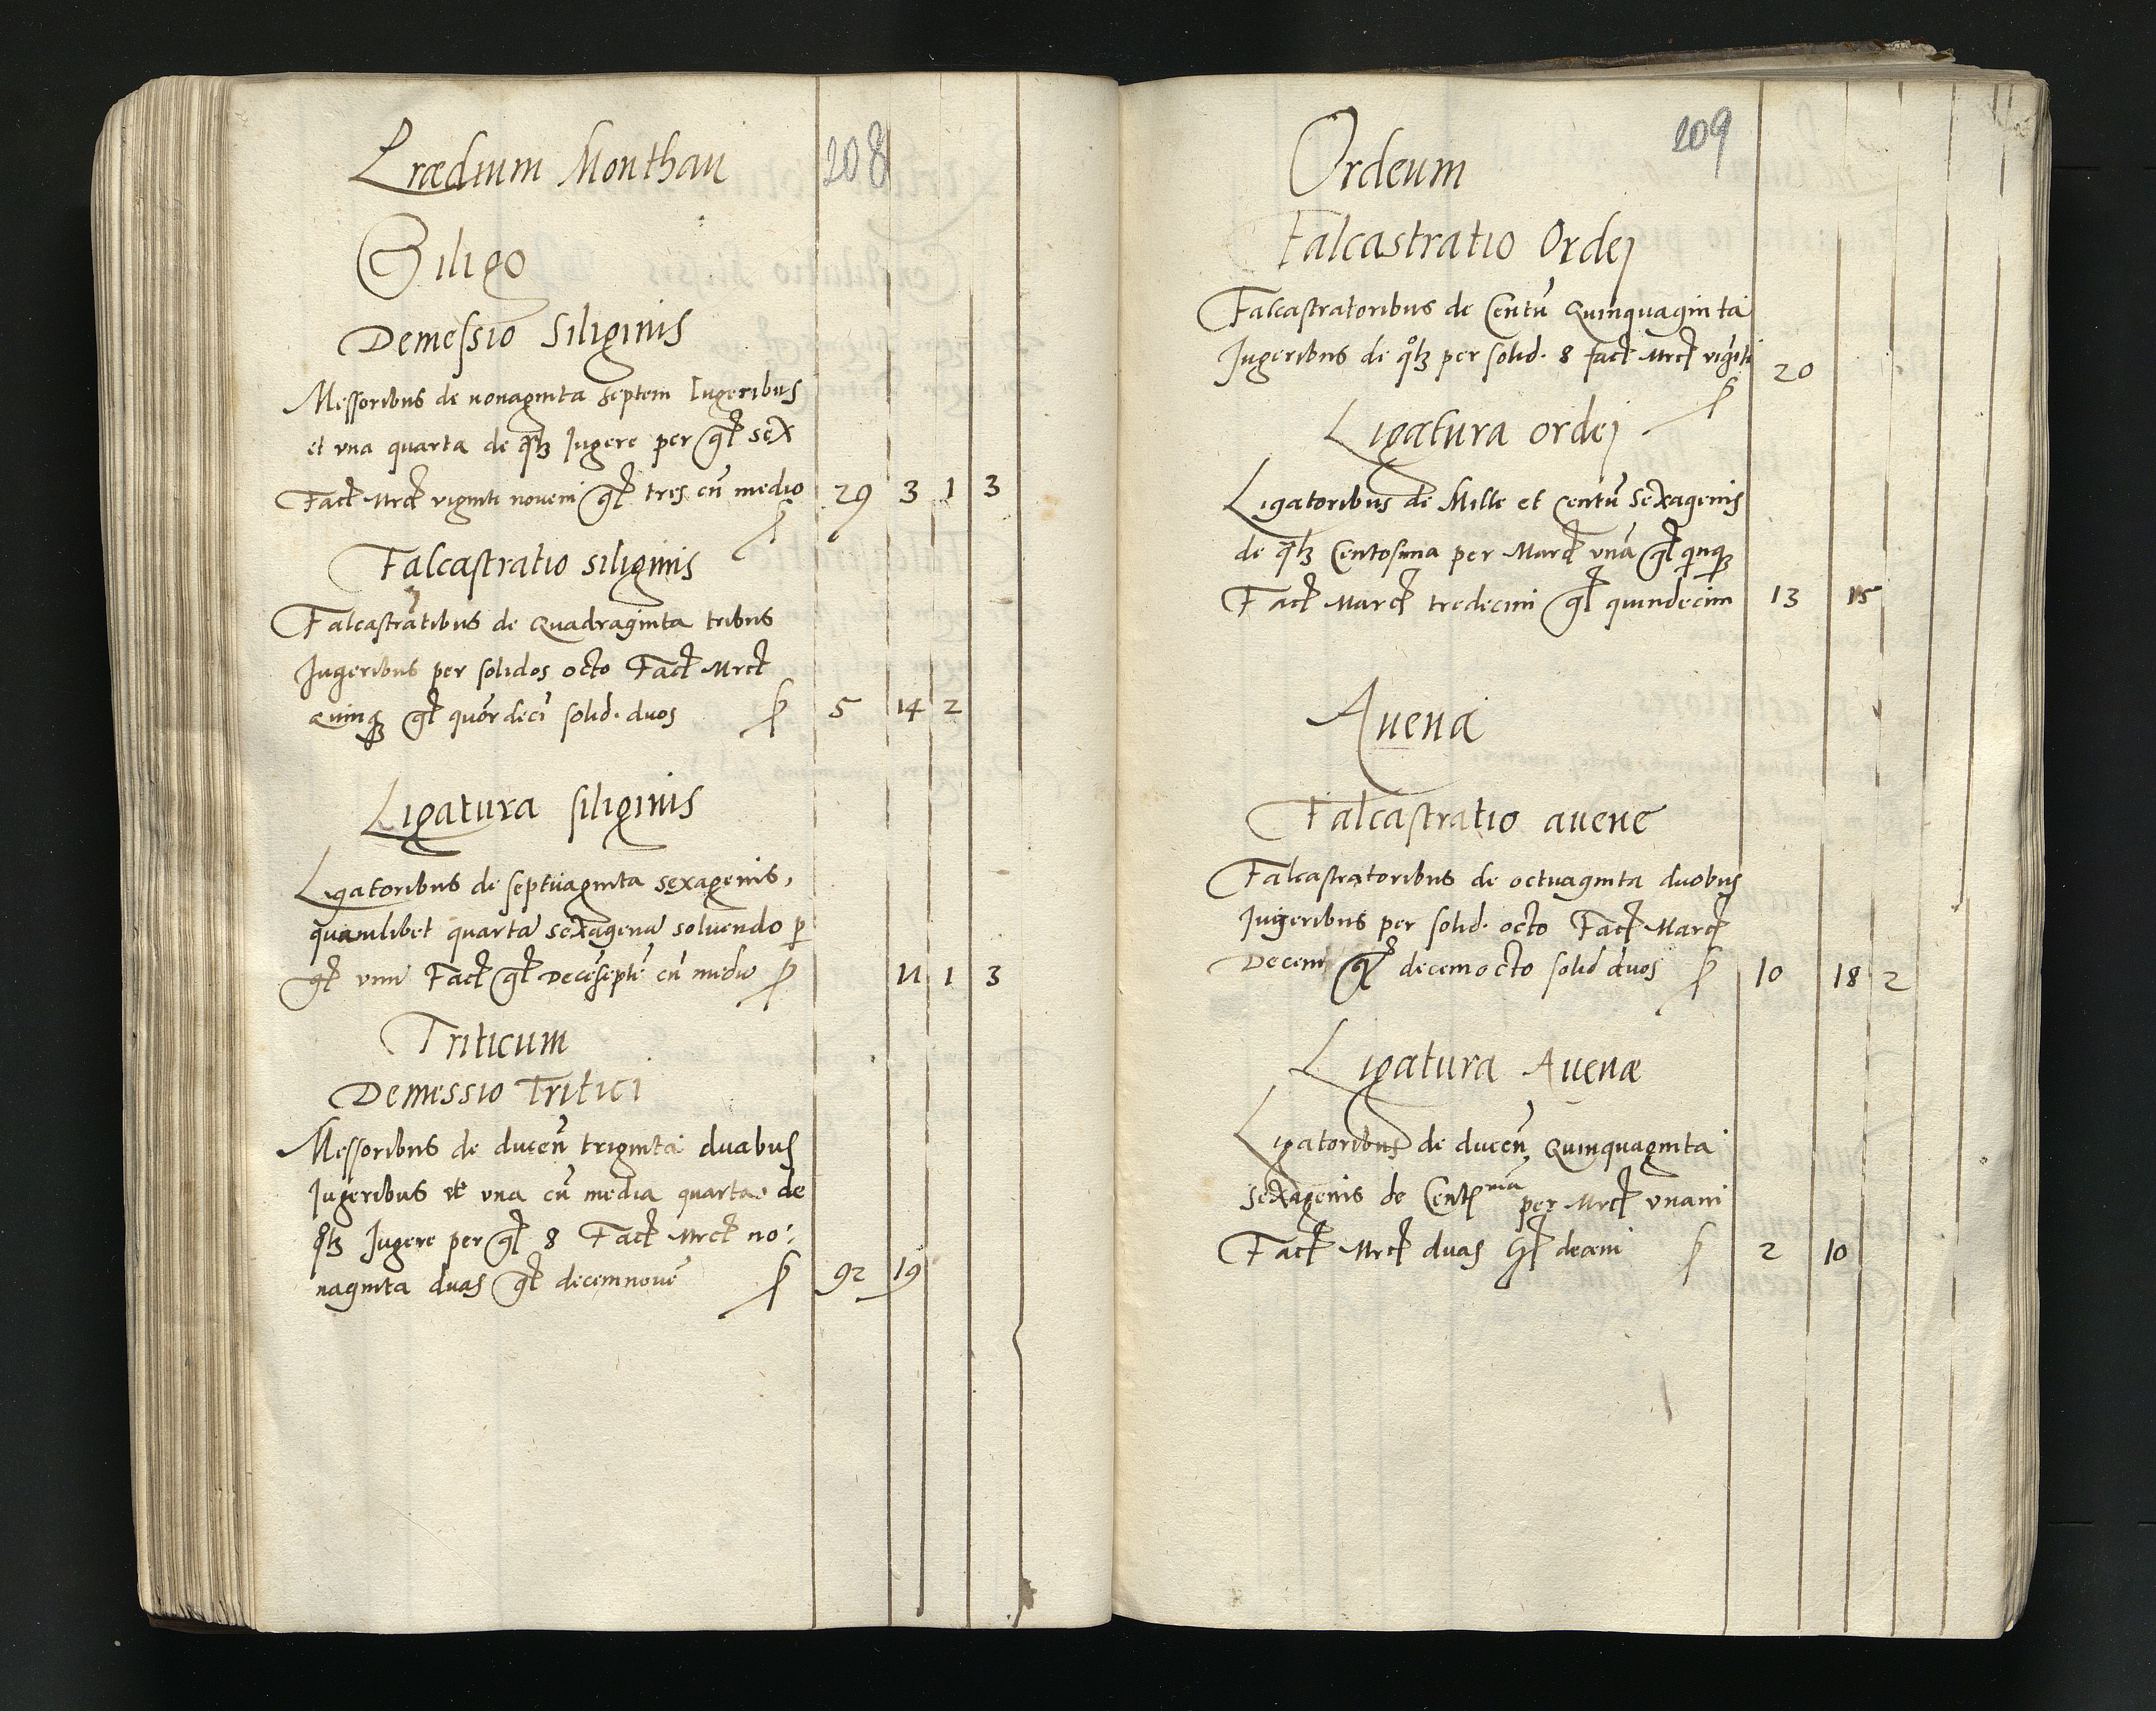 Prædium Monthau 208
Siligo
Demessio Siliginis
Messoribus de nonaginta septem Iugeribus
et vna quarta de qlʒ Jugere per gł sex
Fact Mrct viginti novem gł tres cū medio 29 3 1 3
Falcastratio siliginis
Falcastratibus de Quadraginta tribus
Jugeribus per solidos octo Fact Mrct
Quinqʒ gł quordecī solid. duos 5 14 2
Ligatura siliginis
Ligatoribus de septuaginta sexagenis,
quamlibet quartā sexagenā soluendo p
gł vnū Fact gł Decēseptē cū medio 1 3
Triticum
Demessio Tritici
Messoribus de ducen triginta duabus
Jugeribus et vna cū media quarta de
qlʒ Jugere per gł 8 Fact Mrct no:
naginta duas gł decemnouē 92 19
209
Ordeum
Falcastratio Ordej
Falcastratoribus de Centū Quinquaginta
Jugeribus de qlʒ per solid. 8 fact Mrct viginti 20
Ligatura ordej
Ligatoribus de Mille et Centū Sexagenis
de qlʒ Centesima per Marct vnā gł qnqʒ
Fact Marct tredecim gł quindecim 13 15
Auena
Falcastratio auene
Falcastratoribus de octuaginta duobus
Jugeribus per solid. octo Fact Marct
Decem gł decemocto solid duos 10 18 2
Ligatura Auenæ
Ligatoribus de ducen Quinquaginta
Sexagenis de Centᵐᵃ per Mrct vnam
Fact Mrct duas gł decem 2 10